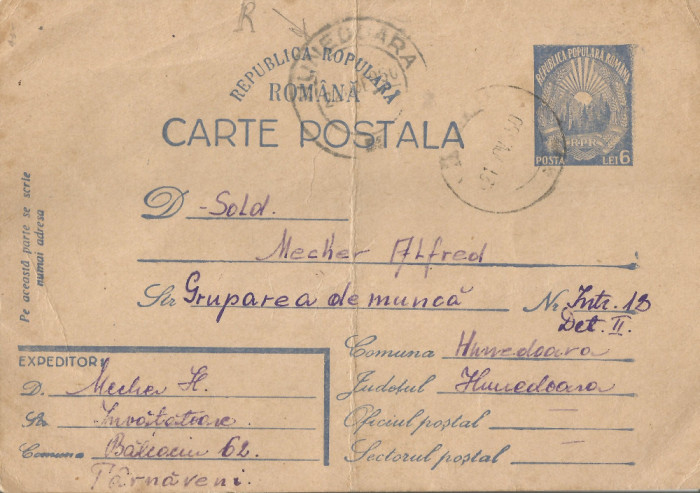 R
HUNEDOARA
REPUBLICA POPULARĂ
ROMÂNĂ
CARTE POSTALA
REPUBLICA POPULARA ROMANA
R·P·R
POSTA LEI 6
Pe această parte se scrie
numai adresa
D. Sold.
Mecher Alfred
Str Gruparea de muncă Nr. Intr. 13
Det. II.
Comuna Hunedoara
Judeţul Hunedoara
Oficiul poştal
Sectorul poştal
EXPEDITOR
D. Mecher H.
Str Învătătoare
Comuna Bălcaciu 62.
Târnăveni.